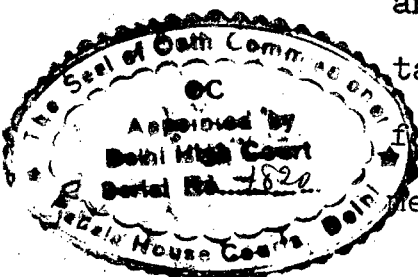 The Seal of Oath Commissioner
OC
Appointed by
Delhi High Court
Serial No. 7820
House Courts, Delhi
ar
ta
f